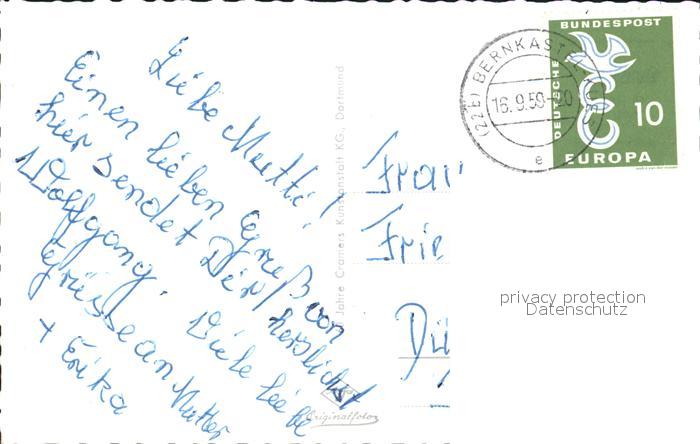 Liebe Mutti!
Einen lieben Gruß von
hier sendet Dir herzlichst
Wolfgang. Viele liebe
Grüsse an Mutter
+ Erika
Jahre Cramers Kunstanstalt KG., Dortmund
Originalfotos
Frau
Frie
Dü
(22b) BERNKASTEL-KUES
16.9.59-20
e
DEUTSCHE
BUNDESPOST
10
EUROPA
privacy protection
Datenschutz